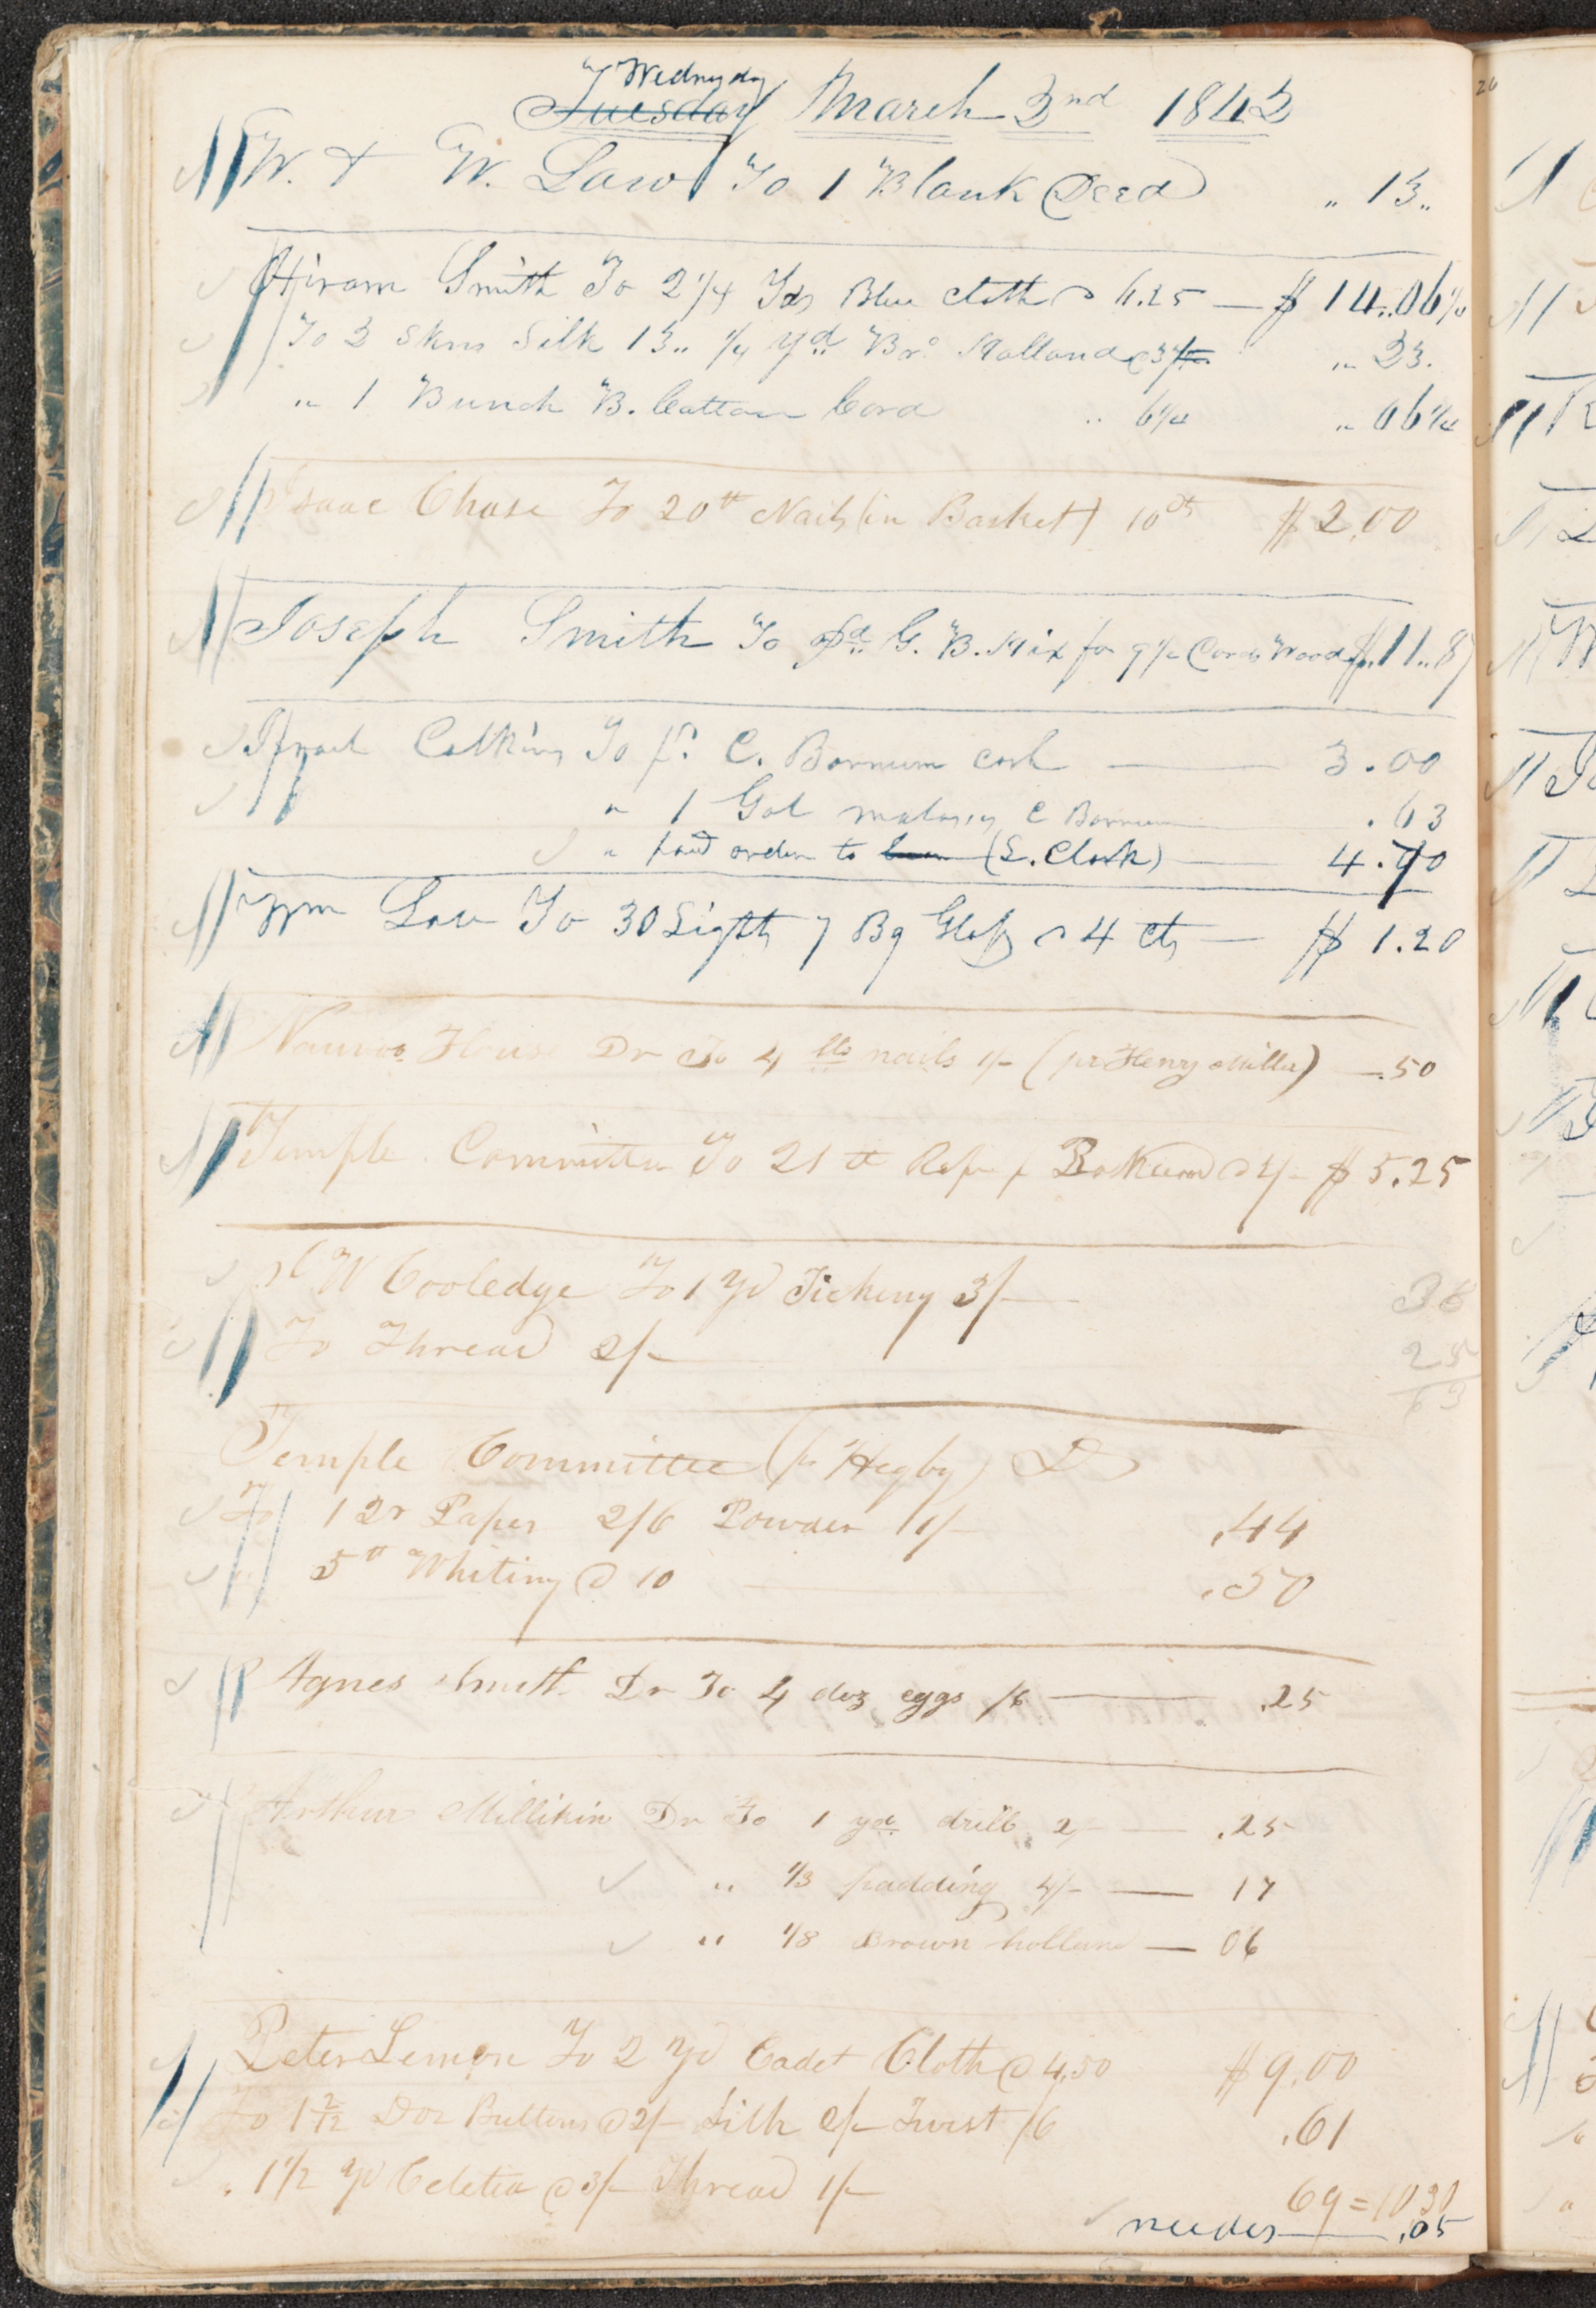 Wednesday
Tuesday March 2nd 1842
W. & W. Law To 1 Blank Deed " 13"
Hiram Smith To 2 1/4 Yds Blue cloth @ 6.25 — $ 14.06 1/4
To 3 Skns Silk 13.. 1/4 yd Bro Holland " 23.
" 1 Bunch B. Cotton Cord .. 6 1/4 " 06 1/4
Isaac Chase To 20 lb Nails (in Basket) 10 cts $ 2.00
Joseph Smith To pd G. B. Hix for 9 1/2 Cords Wood $ 11..87
Israel Calkins To pd C. Barnum cash — 3.00
" 1 Gal molasses C Barnum .63
" paid order to (E. Clark) — 4.70
Wm Law To 30 Lights 7 By 9 Glass @ 4 cts — $ 1.20
Nauvoo House Dr To 4 lbs nails 1/- (pr Henry Miller) — .50
Temple Committee To 21 lb Rope @ 2/- $ 5.25
W Cooledge To 1 Yd Ticking 3/— 38
To Thread 2/- 25
63
Temple Committee (pr Higby) Dr
To 1 Qr Paper 2/6 Powder 1/- .44
5 lb Whiting @ 10 .50
Agnes Smith Dr To 4 doz eggs /6 — .25
Arthur Millikin Dr To 1 yd. drill 2/- — .25
" 1/3 padding 4/- — 17
" 1/8 Brown holland — 06
Peter Lemon To 2 Yd Cadet Cloth @ 4.50 $ 9.00
To 1 2/12 Doz Buttons @ 2/- Silk 2/- Twist /6 .61
" 1 1/2 Yd Celetia @ 3/- Thread 1/- 69 = 10 30
needles — .05
26